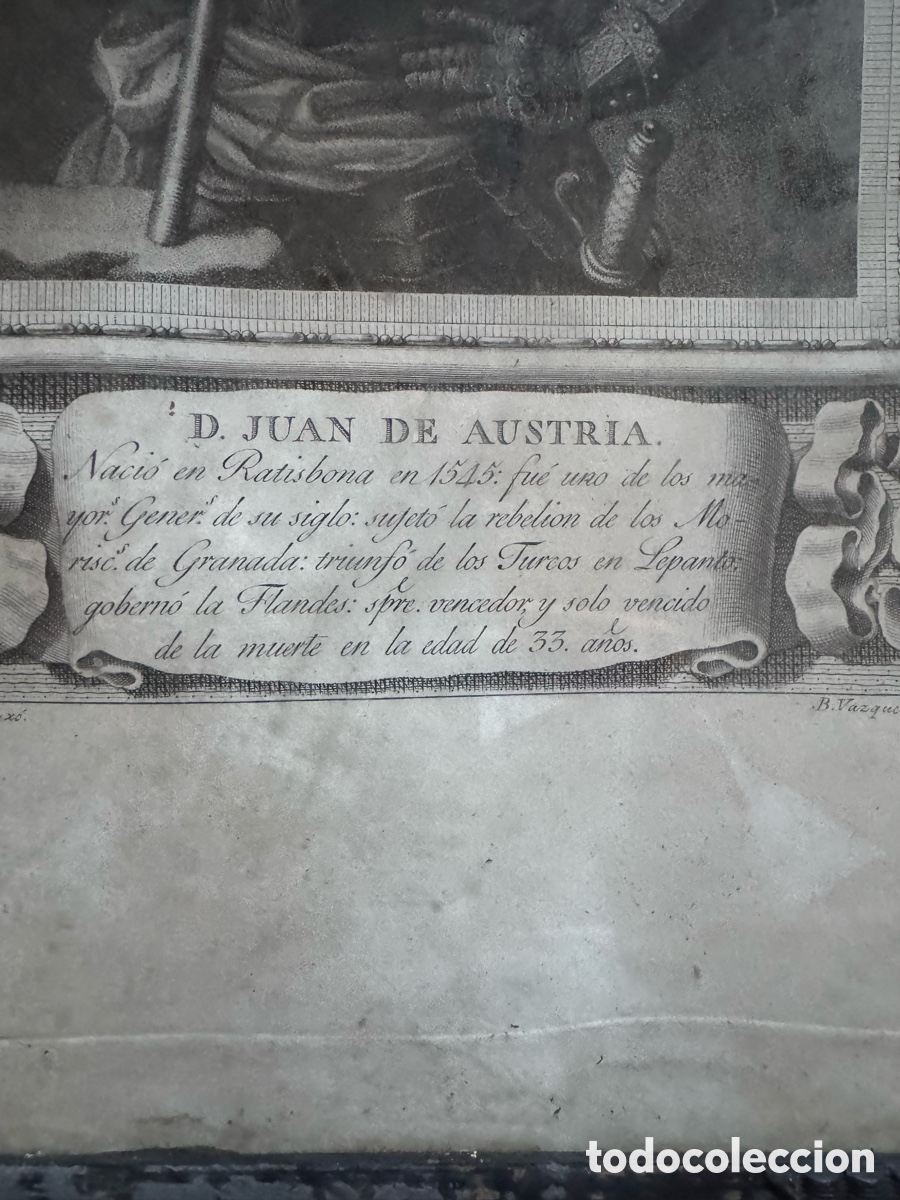 D. JUAN DE AUSTRIA.
Nació en Ratisbona en 1545: fué uno de los ma-
yor.s Gener.s de su siglo: sujetó la rebelion de los Mo-
risc.s de Granada: triunfó de los Turcos en Lepanto:
gobernó la Flandes: spre. vencedor, y solo vencido
de la muerte en la edad de 33. años.
xó.
B. Vazque
todocoleccion